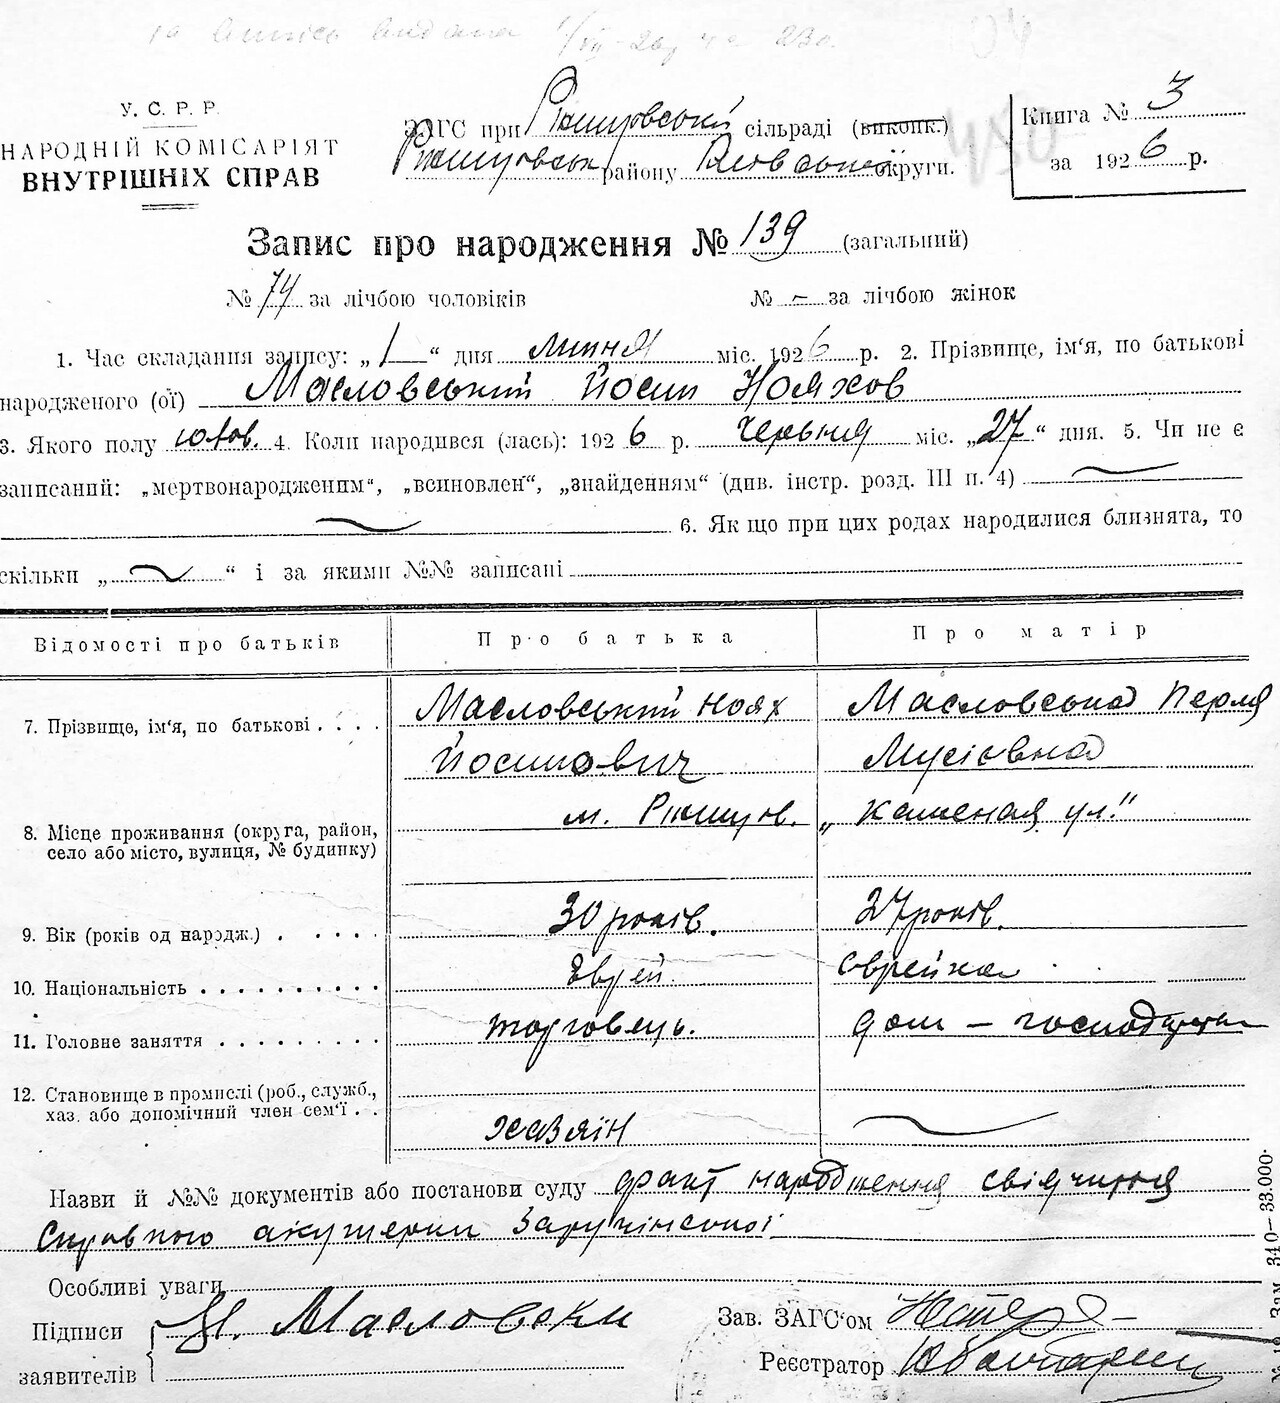 У. С. Р. Р.
НАРОДНІЙ КОМІСАРІЯТ
ВНУТРІШНІХ СПРАВ
ЗАГС при Ржищовській сільраді (виконк.)
Ржищовськ району округи.
Книга № 3
за 1926 р.
Запис про народження № 139 (загальний)
№ 74 за лічбою чоловіків № – за лічбою жінок
1. Час складання запису: „1“ дня липня міс. 1926 р. 2. Прізвище, ім'я, по батькові
народженого (ої) Масловський Йосип Нояхов
3. Якого полу 4. Коли народився (лась): 1926 р. червня міс. „27“ дня. 5. Чи не є
записаний: „мертвонародженим“, „всиновлен“, „знайденням“ (див. інстр. розд. III п. 4)
6. Як що при цих родах народилися близнята, то
скільки „ “ і за якими №№ записані
Відомості про батьків Про батька Про матір
7. Прізвище, ім'я, по батькові . . . . Масловський Ноях Масловська Перля
Йосипович Мусіовна
8. Місце проживання (округа, район, м. Ржищов. „Каменая ул."
село або місто, вулиця, № будинку)
9. Вік (років од народж.) . . . . . 30 років. 27 років.
10. Національність . . . . . . . . . . Еврей. Єврейка
11. Головне заняття . . . . . . . . . торговець. дом –
12. Становище в промислі (роб., служб.,
хаз. або допомічний член сем'ї . . хазяїн
Назви й №№ документів або постанови суду факт народження
акушерки
Особливі уваги
Підписи Н. Масловски
заявителів
Зав. ЗАГС'ом
Реєстратор
340–33.000·